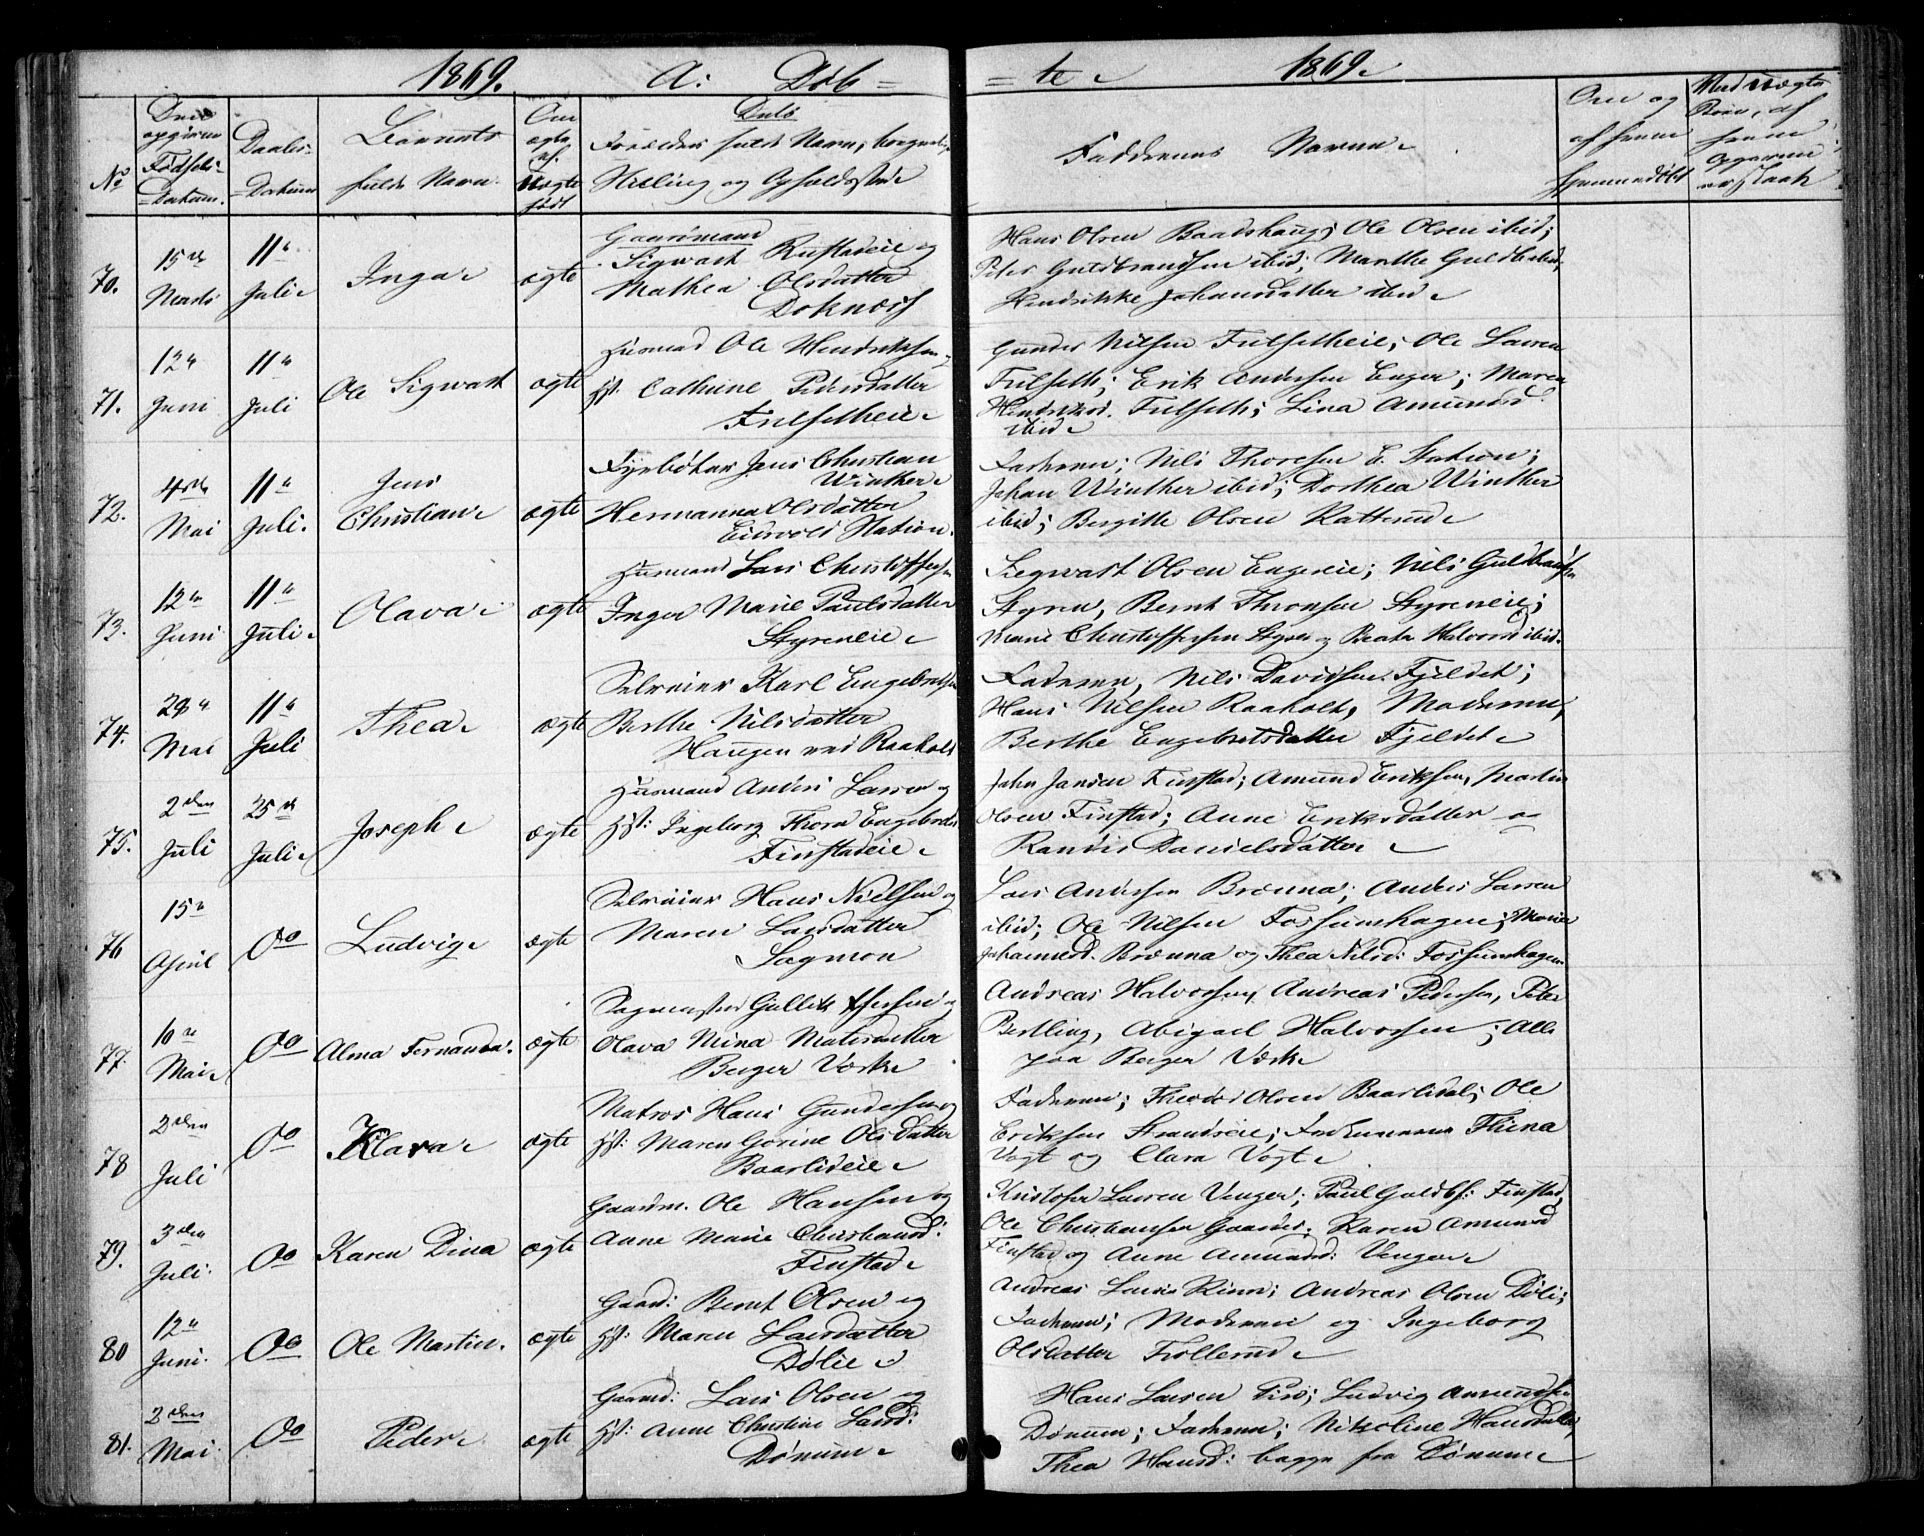 1869. A: Døb =
= te 1869.
No
Den opgivne Fødsels-Datum.
Daabs-Datum
Barnets fulde Navn.
Om ægte el. uægte født
Dets
Forældres fulde Navn, borgerlige
Stilling og Opholdssted
Faddernes Navne
Om og af hvem hjemmedøbt
70.
15de Marts
11te Juli
Inga
ægte
Gaardmand
Sigwart Rustadeie og
Mathea Olsdatter
Doknæss
Hans Olsen Baadshaug; Ole Olsen ibid;
Peter Guldbrandsen ibid; Marthe Guldb. ibid,
Hendrikke Johansdatter ibid
71.
12te Juni
11te Juli
Ole Sigwart
ægte
Husmand Ole Hendriksen
Hst: Cathrine Pedersdatter
Fulsetheie
Gunder Nilsen Fulsetheie; Ole Larsen
Fulseth; Erik Andersen Enger; Maren
Hendriksd. Fulseth; Lina Amundsd.
ibid
72.
4de Mai
11te Juli.
Jens Christian
ægte
Fyrbøter Jens Christian
Winther
Hermanna Olsdatter
Eidsvold Station.
Faderen; Nils Thoresen E. Station;
Johan Winther ibid; Dorthea Winther
ibid; Bergitte Olsen Ratterud
73.
12te Juni
11te Juli
Olava
ægte
Husmand Lars Christoffersen
Inger Marie Paulsdatter
Styreneie
Siegwart Olsen Engereie; Nils Guldbrandsen
Styren, Bernt Thronsen Styreneie;
Marie Christoffersen Styren og Beate Halvorsd ibid.
74.
29de Mai
11te Juli
Thea
ægte
Selveier Karl Engebretsen
Berthe Nilsdatter
Haugen ved Raaholt
Faderen, Nils Davidsen Fjeldet;
Hans Nilsen Raaholt, Moderen,
Berthe Engebretsdatter Fjeldet
75.
2den Juli
25de Juli
Joseph
ægte
Husmand Anders Larsen og
Hst: Ingeborg Thora Engebretsd
Finstadeie
John Jansen Finstad; Amund Eriksen, Martin
Olsen Finstad; Anne Eriksdatter og
Randi Danielsdatter
76
15de April
Do
Ludvig
ægte
Selveier Hans Nielsen og
Maren Larsdatter
Sagmon
Lars Andersen Brønna; Anders Larsen
ibid; Ole Nilsen Fossumhagen; Marie
Johannesd. Brønna og Thea Nilsd: Fossumhagen
77.
10de Mai
Do
Alma Fernanda.
ægte
Sagmester Gullik Espesen og
Olava Mina Matisdatter
Berger Værk
Andreas Halvorsen, Andreas Pedersen, Peter
Bertling, Abigael Halvorsen; Alle
paa Berger Værk
78
2den Juli
Do
Klara
ægte
Matros Hans Gundersen og
Hst: Maren Gorine Olsdatter
Baarlideie
Faderen; Theodor Olsen Baarlidal; Ole
Eriksen Strandseie; Thina
Vogt og Clara Vogt
79.
3den Juli.
Do
Karen Dina
ægte
Gaardm. Ole Hansen og
Anne Marie Christiansd:
Finstad
Kristofer Larsen Venger; Paul Guldbs: Finstad,
Ole Christiansen Gaarder, Karen Amundsd
Finstad og Anne Amundsd: Venger
80
12te Juni.
Do
Ole Martin.
ægte
Gaard: Bernt Olsen og
Hst: Maren Larsdatter
Dølie
Andreas Larsen Rinn; Andreas Olsen Døli;
Faderen; Moderen og Ingeborg
Olsdatter Trollerud
81.
2den Mai.
Do
Peder
ægte
Gaard: Lars Olsen og
Hst: Anne Christine Larsd:
Dønnum
Hans Larsen Piro; Ludvig Amundsen
Dønnum; Faderen; Nikoline Hansdatter,
Thea Hansd: begge fra Dønnum